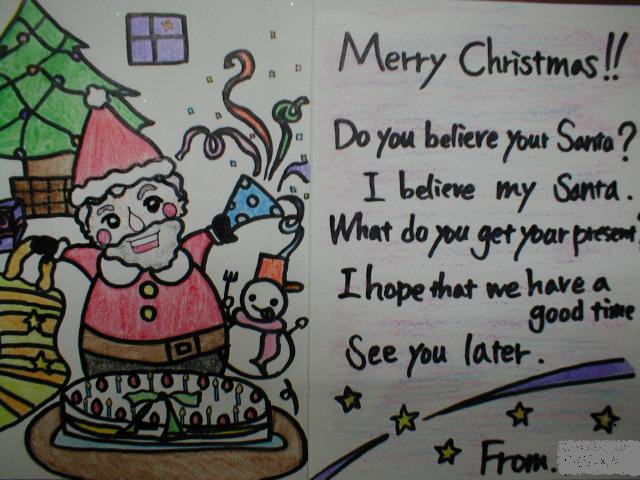 Merry Christmas!!
Do you believe your Santa?
I believe my Santa.
What do you get your present
I hope that we have a
good time
See you later.
From.